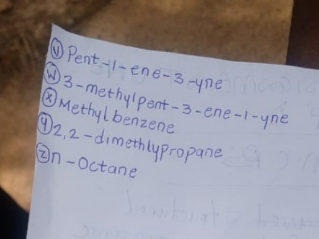 Ⓥ Pent-1-ene-3-yne
Ⓦ 3-methylpent-3-ene-1-yne
Ⓧ Methylbenzene
Ⓨ 2,2-dimethlypropane
Ⓩ n-Octane